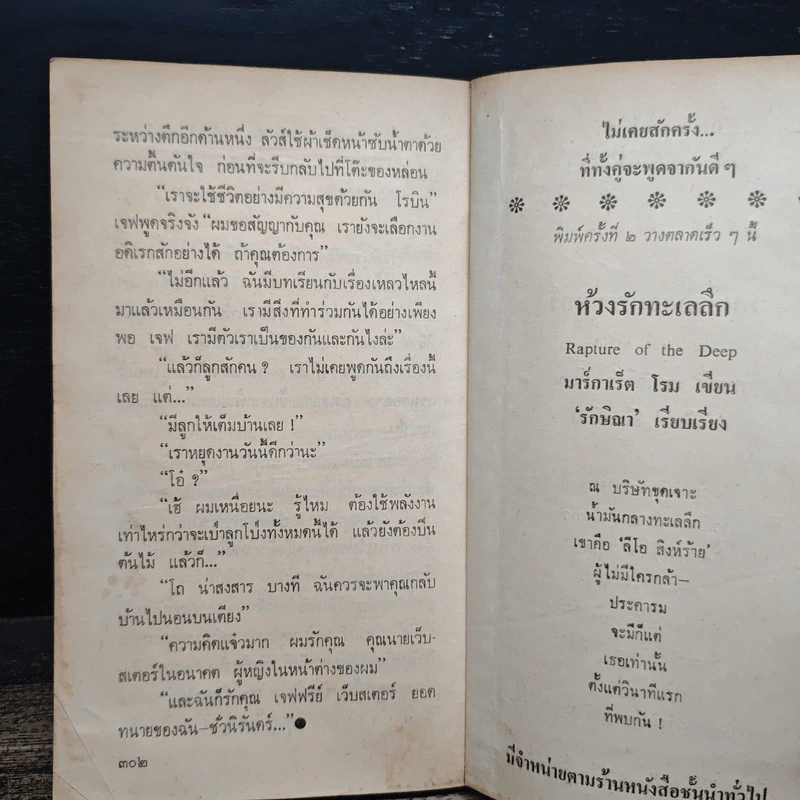 ระหว่างตึกอีกด้านหนึ่ง ลัวส์ใช้ผ้าเช็ดหน้าซับน้ำตาด้วย
ความตื้นตันใจ ก่อนที่จะรีบกลับไปที่โต๊ะของหล่อน
“เราจะใช้ชีวิตอย่างมีความสุขด้วยกัน โรบิน”
เจฟพูดจริงจัง “ผมขอสัญญากับคุณ เรายังจะเลือกงาน
อดิเรกสักอย่างได้ ถ้าคุณต้องการ”
“ไม่อีกแล้ว ฉันมีบทเรียนกับเรื่องเหลวไหลนี้
มาแล้วเหมือนกัน เรามีสิ่งที่ทำร่วมกันได้อย่างเพียง
พอ เจฟ เรามีตัวเราเป็นของกันและกันไงล่ะ”
“แล้วก็ลูกสักคน ? เราไม่เคยพูดกันถึงเรื่องนี้
เลย แต่...”
“มีลูกให้เต็มบ้านเลย !”
“เราหยุดงานวันนี้ดีกว่านะ”
“โอ๋ ?”
“เฮ้ ผมเหนื่อยนะ รู้ไหม ต้องใช้พลังงาน
เท่าไหร่กว่าจะเป่าลูกโป่งทั้งหมดนี้ได้ แล้วยังต้องปีน
ต้นไม้ แล้วก็...”
“โถ น่าสงสาร บางที ฉันควรจะพาคุณกลับ
บ้านไปนอนบนเตียง”
“ความคิดแจ๋วมาก ผมรักคุณ คุณนายเว็บ-
สเตอร์ในอนาคต ผู้หญิงในหน้าต่างของผม”
“และฉันก็รักคุณ เจฟฟรีย์ เว็บสเตอร์ ยอด
ทนายของฉัน—ชั่วนิรันดร์...”●
๓๐๒
ไม่เคยสักครั้ง...
ที่ทั้งคู่จะพูดจากันดี ๆ
พิมพ์ครั้งที่ ๒ วางตลาดเร็ว ๆ นี้
ห้วงรักทะเลลึก
Rapture of the Deep
มาร์กาเร็ต โรม เขียน
‘รักษิณา’ เรียบเรียง
ณ บริษัทขุดเจาะ
น้ำมันกลางทะเลลึก
เขาคือ ‘ลีโอ สิงห์ร้าย’
ผู้ไม่มีใครกล้า—
ประคารม
จะมีก็แต่
เธอเท่านั้น
ตั้งแต่วินาทีแรก
ที่พบกัน !
มีจำหน่ายตามร้านหนังสือชั้นนำทั่วไป